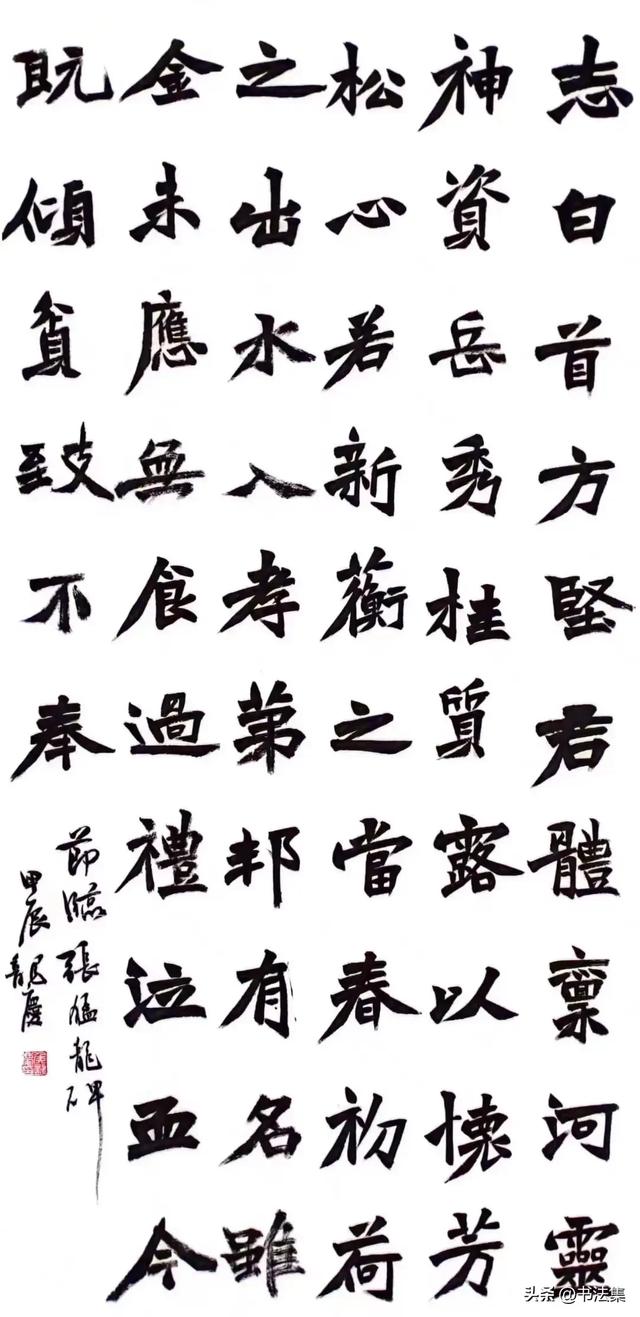 志白首方堅君體稟河靈
神資岳秀桂質露以懷芳
松心若新蘅之當春初荷
之出水入孝苐邦有名雖
金未應無食過禮泣血今
既傾貧致不奉
節臨張猛龍碑
甲辰
头条 @书法集